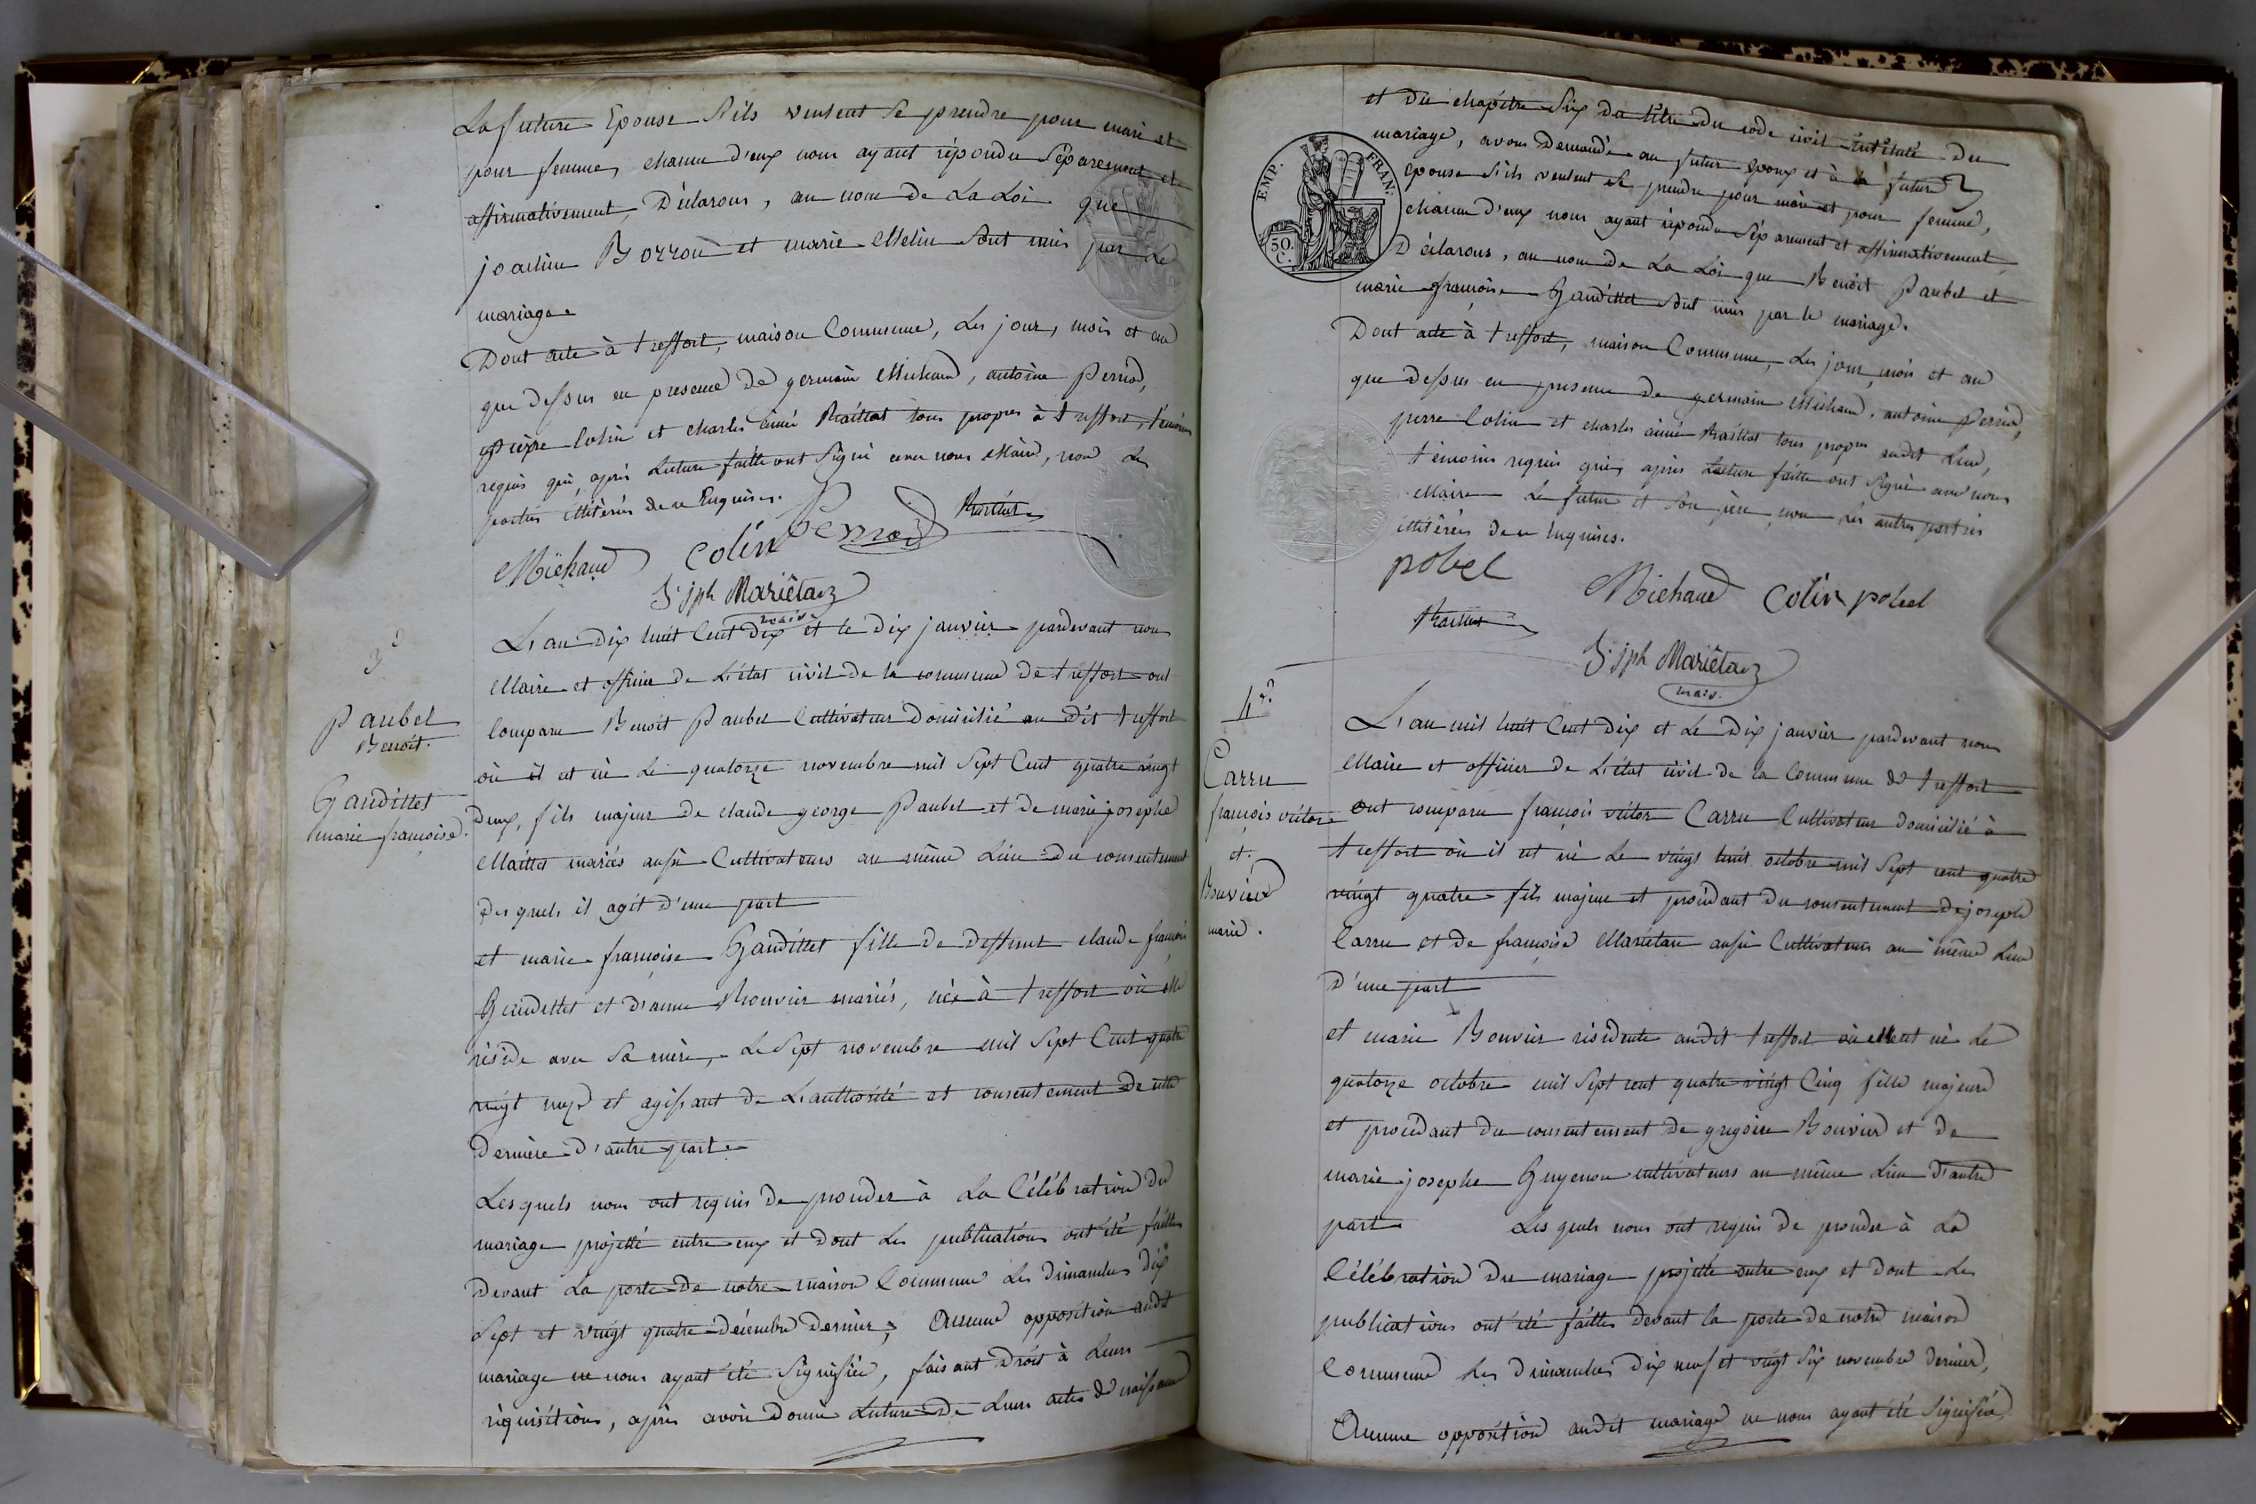 La future Epouse S'ils veulent se prendre pour mari et
pour femme, chacun d'eux nous ayant répondu séparement et
affirmativement, Déclarons, au nom de La Loi que
joachim Borron et marie Melin sont unis par le
mariage
Dont acte à treffort, maison Commune, Les jour, mois et an
que dessus en presence de germain Michaud, antoine Perrod,
pierre Colin et charles aimé tous propres à treffort, témoins
requis qui, après Lecture faitte ont Signé avec nous Maire, non Les
parties illitérés de ce Enquises.
Michaud Colin Perrod
J. Jph Mariétan
maire
3e
Paubel
Benoit.
Gandillet
marie françoise.
L'an dix huit Cent Dix et le Dix janvier pardevant nous
Maire et officier de L'état civil de la commune de treffort ont
Comparu Benoit Paubel Cultivateur Domicilié au dit treffort
où il est né Le quatorze novembre mil Sept Cent quatre vingt
deux, fils majeur de claude george Paubel et de marie josephe
Maillet mariés aussi Cultivateurs au même Lieu du consentement
Des quels il agit D'une part
et marie françoise Gandillet fille de deffunt claude françois
Gandillet et d'anne Bouvier mariés, née à treffort où elle
réside avec Sa mère, Le Sept novembre mil Sept Cent quatre
vingt et agissant de L'authorité et consentement de cette
Dernière D'autre part
Lesquels nous ont requis de proceder à La Célébration du
mariage projetté entre eux et dont Les publications ont été faittes
Devant La porte de notre maison Commune Les Dimanches dix
Sept et vingt quatre décembre Dernier; Aucune opposition audit
mariage ne nous ayant été Signifiée, faisant Droit à Leurs
réquisitions, après avoir Donné Lecture de Leurs actes de naissance
et du chapitre Six du titre du code civil intitulé du
mariage, avons Demandé au futur epoux et à la future
epouse S'ils veulent se prendre pour mari et pour femme,
chacun d'eux nous ayant répondu Séparement et affirmativement,
Déclarons, au nom de La Loi que Benoit Paubel et
marie françoise Gandillet Sont unis par le mariage.
Dont acte à treffort, maison Commune, Les jour, mois et an
que dessus en presence de germain Michaud, antoine Perrod,
pierre Colin et charles aimé tous propres audit Lieu,
témoins requis qui, après Lecture faitte ont Signé avec nous
Maire Le futur et Son père, non Les autres parties
illitérées de ce Enquises.
EMP. FRAN.
50.
C.
pobel Michaud Colin pobel
J. Jph Mariétan
maire.
4e
Carru
françois victor
et
Bouvier
marie.
L'an mil huit Cent Dix et Le Dix janvier pardevant nous
Maire et officier de L'état civil de la Commune de treffort
ont comparu françois victor Carru Cultivateur Domicilié à
treffort où il est né Le vingt huit octobre mil Sept cent quatre
vingt quatre fils majeur et procédant du consentement de joseph
Carru et de françoise Mariétan aussi Cultivateurs au même Lieu
D'une part
et marie Bouvier résidente audit treffort où elle est née Le
quatorze octobre mil Sept cent quatre vingt Cinq fille majeure
et procédant du consentement de grégoire Bouvier et de
marie josephe Guyenon cultivateurs au même Lieu D'autre
part Lesquels nous ont requis de proceder à La
Célébration du mariage projetté entre eux et dont Les
publications ont été faittes Devant la porte de notre maison
Commune Les Dimanches Dix neuf et vingt Six novembre Dernier,
Aucune opposition audit mariage ne nous ayant été Signifiée,